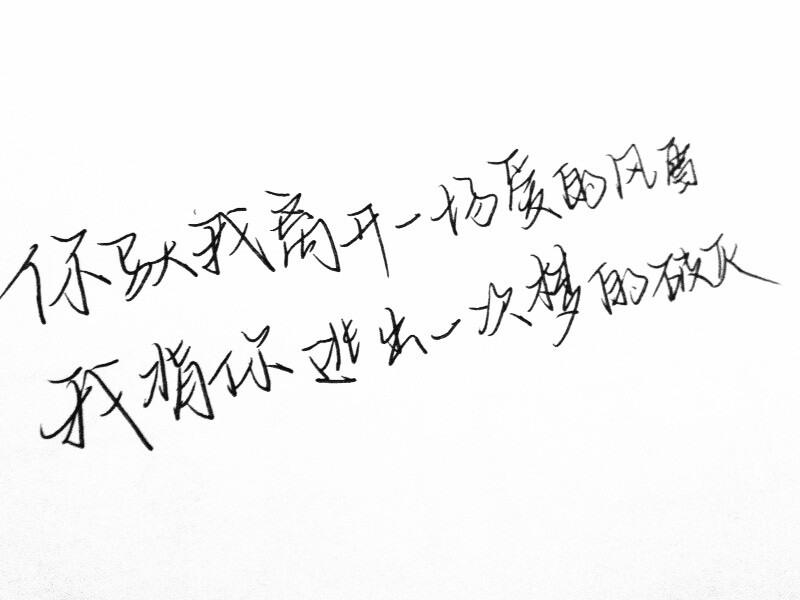 你驮我离开一场爱的风雪
我捎你逃出一次梦的破灭